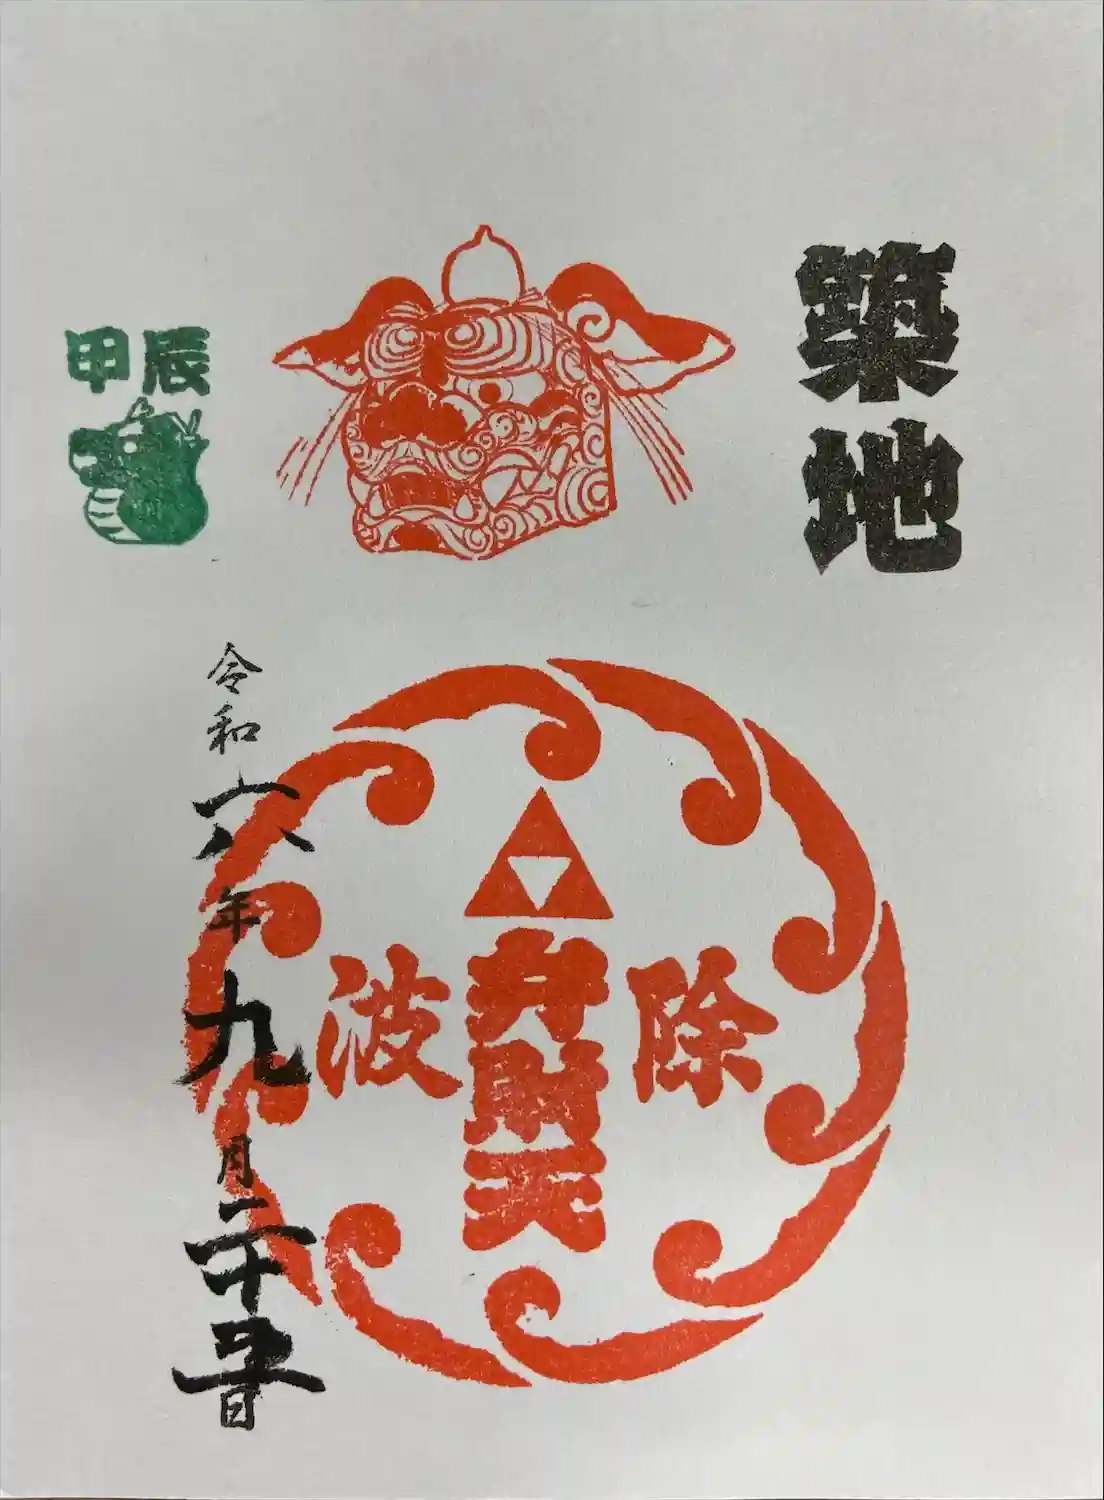 築地
波除
弁財天
甲辰
令和六年九月二十五日